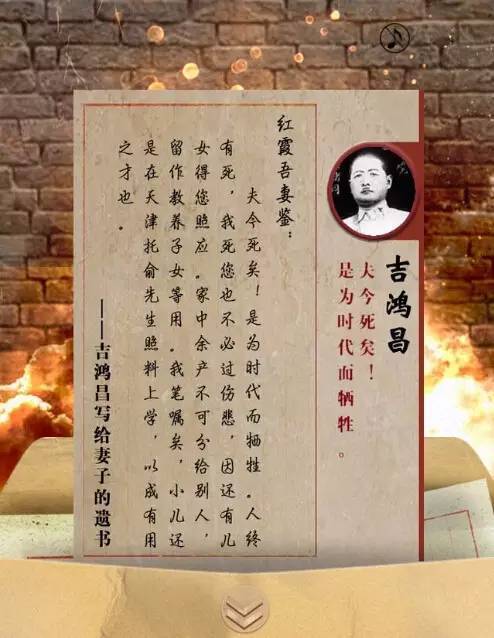 吉鸿昌
夫今死矣！
是为时代而牺牲。
红霞吾妻鉴：
夫今死矣！是为时代而牺牲。人终
有死，我死您也不必过伤悲，因还有儿
女得您照应。家中余产不可分给别人，
留作教养子女等用。我笔嘱矣，小儿还
是在天津托俞先生照料上学，以成有用
之才也。
——吉鸿昌写给妻子的遗书